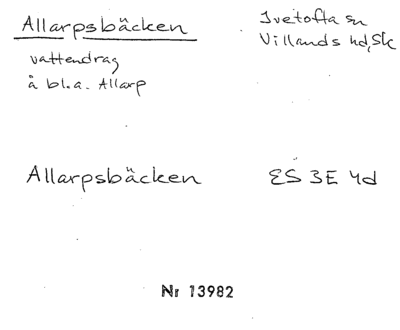 Allarpsbäcken
Ivetofta sn
Villands hd, Sk
vattendrag
å bl.a. Allarp
Allarpsbäcken
ES 3E 4d
Nr 13982